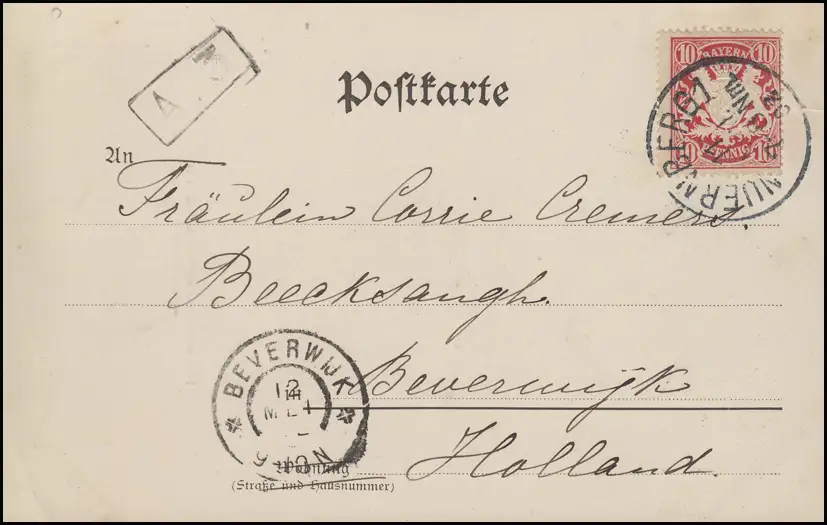 A. 3
10 BAYERN 10
10 PFENNIG 10
NUERNBERG 1
Postkarte
An
Fräulein Corrie Cremers.
Beecksangh.
BEVERWIJK
12
MEI
Beverwijk
Holland.
Wohnung
(Straße und Hausnummer)